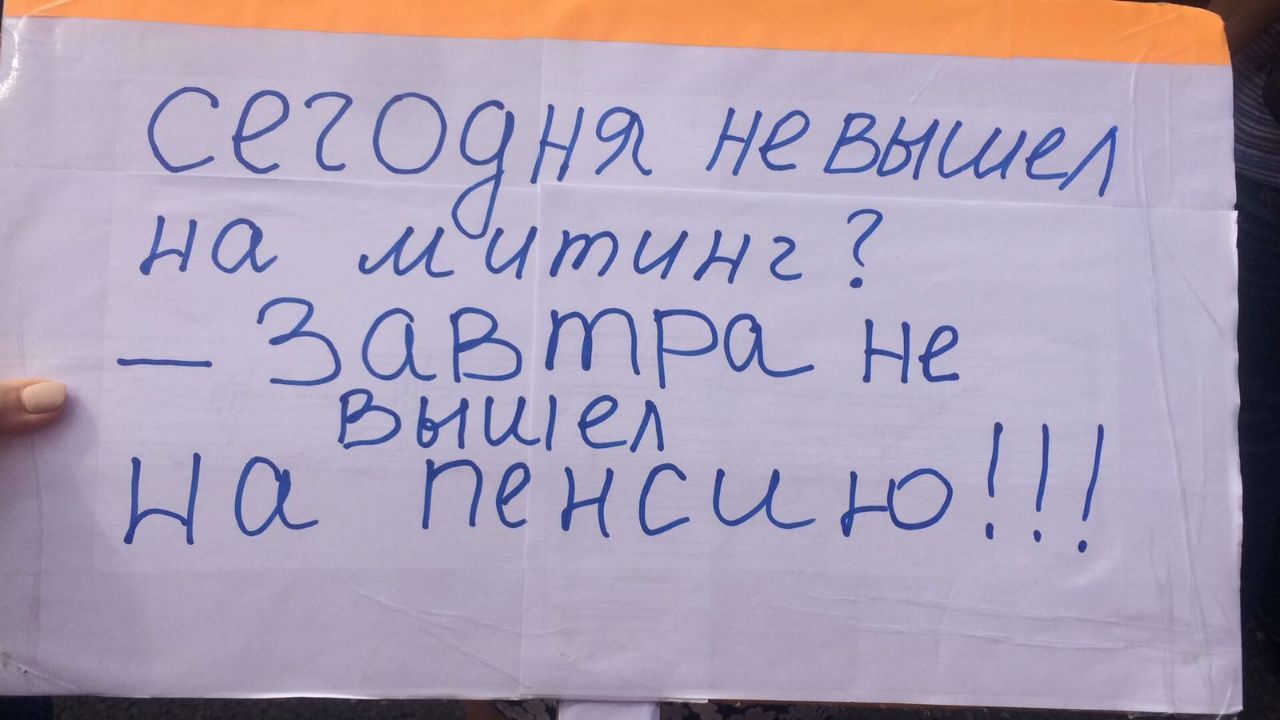 сегодня не вышел
на митинг?
— Завтра не
вышел
на пенсию!!!